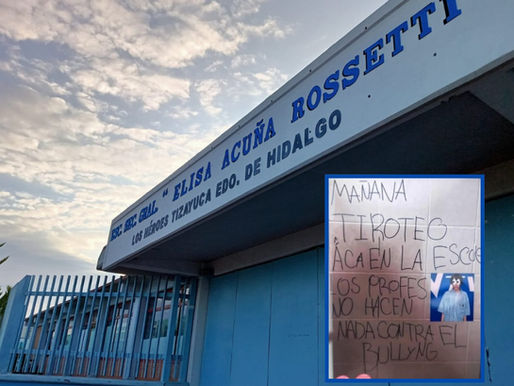 ESC. SEC. GRAL. "ELISA ACUÑA ROSSETTI
LOS HÉROES TIZAYUCA EDO. DE HIDALGO
MAÑANA
TIROTEO
ACA EN LA ESCUE
LOS PROFES
NO HACEN
NADA CONTRA EL
BULLYNG